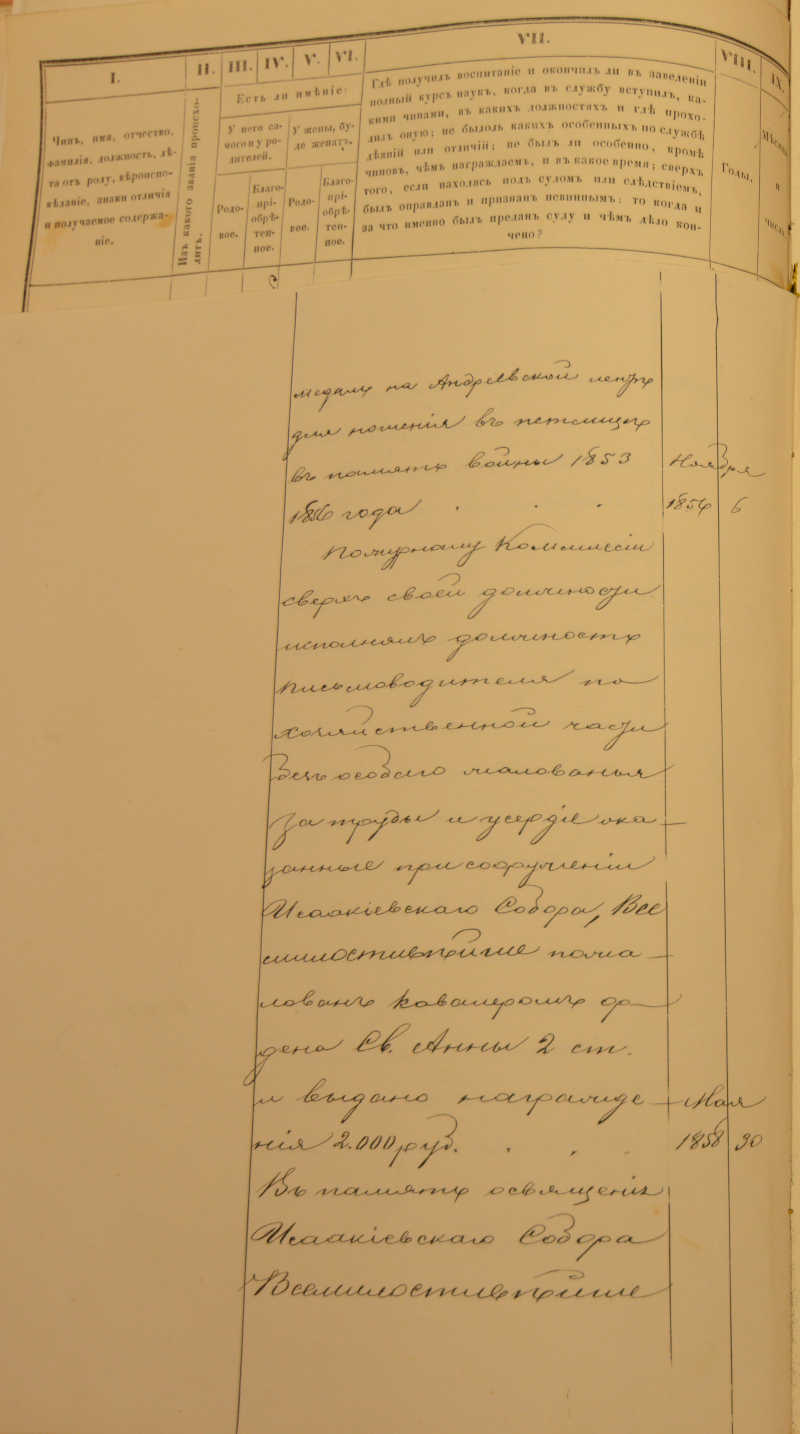 I.
II.
III.
IV.
V.
VI.
VII.
VIII.
IX.
Чинъ, имя, отчество,
фамилія, должность, лѣ-
та отъ роду, вѣроиспо-
вѣданіе, знаки отличія
и получаемое содержа-
ніе.
Изъ какого званія происхо-
дитъ.
Есть ли имѣніе:
У него са-
мого и у ро-
дителей.
У жены, бу-
де женатъ.
Родо-
вое.
Благо-
прі-
обрѣ-
тен-
ное.
Родо-
вое.
Благо-
прі-
обрѣ-
тен-
ное.
Гдѣ получилъ воспитаніе и окончилъ ли въ заведеніи
полный курсъ наукъ, когда въ службу вступилъ, ка-
кими чинами, въ какихъ должностяхъ и гдѣ прохо-
дилъ оную; не было ль какихъ особенныхъ по службѣ
дѣяній или отличій; не былъ ли особенно, кромѣ
чиновъ, чѣмъ награждаемъ, и въ какое время; сверхъ
того, если находясь подъ судомъ или слѣдствіемъ,
былъ оправданъ и признанъ невиннымъ: то когда и
за что именно былъ преданъ суду и чѣмъ дѣло кон-
чено?
Годы.
Мѣсяцы
и
числа.
медаль на Андреевской лентѣ
для ношенія въ петлицѣ
въ память войны 1853
1856 года . . .
Ноября
1856 6
Комиссіи
сверхъ своей должности
исполнялъ должность
по
Хозяйственной части
За труды и усердіе ока
занные при сооруженіи
Исаакіевскаго Собора, Все
милостивѣйше пожа
лованъ Кавалеромъ ор
дена Св. Анны 2 ст.
и выдано награжде
нія 2.000 руб. . . .
Мая
1858 30
Въ память освященія
Исаакіевскаго Собора
Всемилостивѣйше